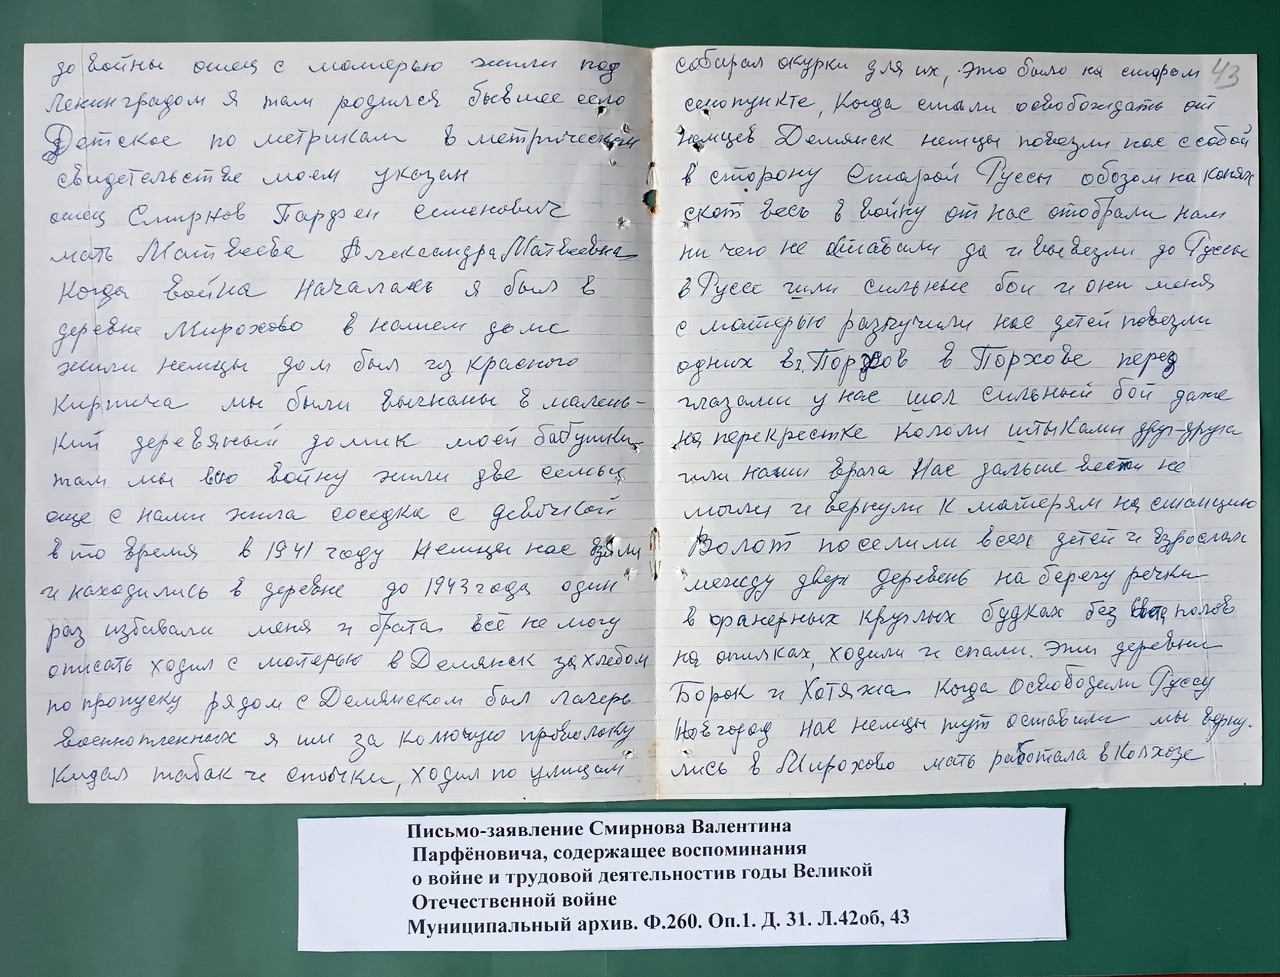 до войны отец с матерью жили под
Ленинградом я там родился бывшее село
Детское по метрикам в метрическом
свидетельстве моем указан
отец Смирнов Парфен семенович
мать Матвеева Александра Матвеевна
Когда война началась я был в
деревне Мирохово в нашем доме
жили немцы дом был из красного
кирпича мы были выгнаны в малень-
кий деревяный домик моей бабушки,
там мы всю войну жили две семьи
еще с нами жила соседка с девочкой
в то время в 1941 году Немцы нас взяли
и находились в деревне до 1943 года один
раз избивали меня и брата всё не могу
описать ходил с матерью в Демянск за хлебом
по пропуску рядом с Демянском был лагерь
военнопленных я им за колючую проволоку
Кидал табак и спички, ходил по улицам
43
собирал окурки для их, это было на старом
сенопункте, Когда стали освобождать от
немцев Демянск немцы повезли нас с собой
в сторону Старой Руссы обозом на конях
скот весь в войну от нас отобрали нам
ни чего не оставили да и вывезли до Руссы
в Руссе шли сильные бои и они меня
с матерью разлучили нас детей повезли
одних в г. Порхов в Порхове перед
глазами у нас шол сильный бой даже
на перекрестке кололи штыками друг-друга
или наши врага Нас дальше вести не
стали и вернули к матерям на станцию
Волот поселили всех детей и взрослых
между двух деревень на берегу речки
в фанерных круглых будках без полов
на опилках, ходили и спали. Эти деревни
Борок и Хотяжа Когда Освободили Руссу
Новгород нас немцы тут оставили мы верну-
лись в Мирохово мать работала в Колхозе
Письмо-заявление Смирнова Валентина
Парфёновича, содержащее воспоминания
о войне и трудовой деятельностив годы Великой
Отечественной войне
Муниципальный архив. Ф.260. Оп.1. Д. 31. Л.42об, 43